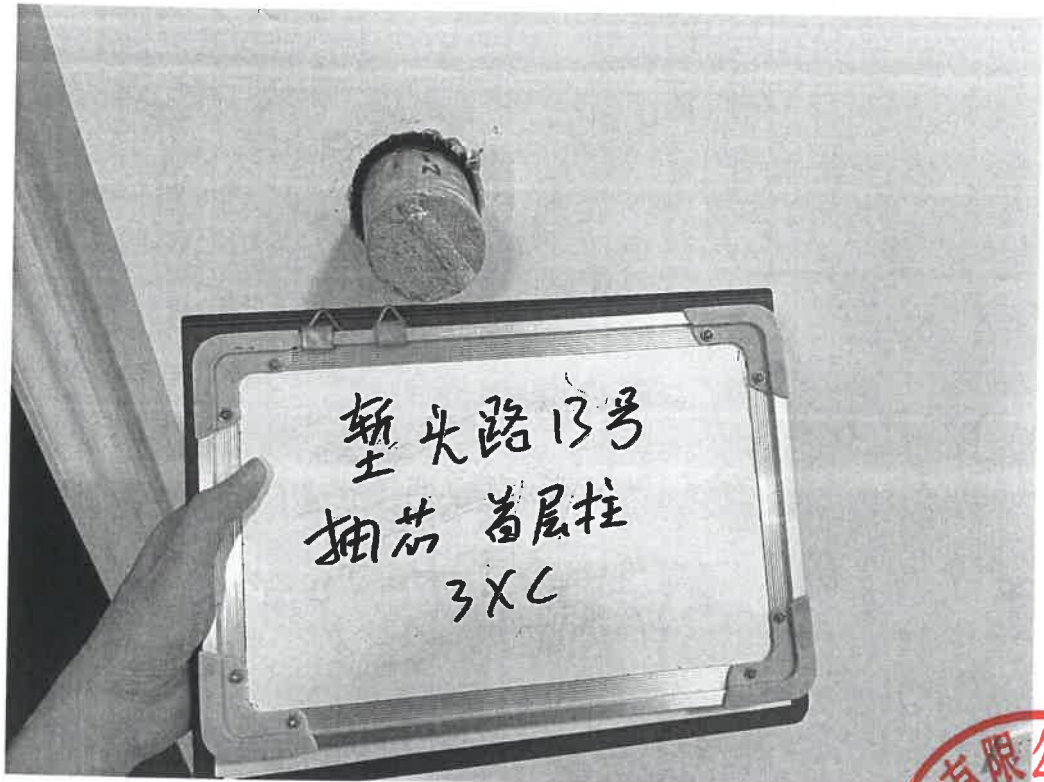 塹头路13号
抽芯 首层柱
3XC
有限公